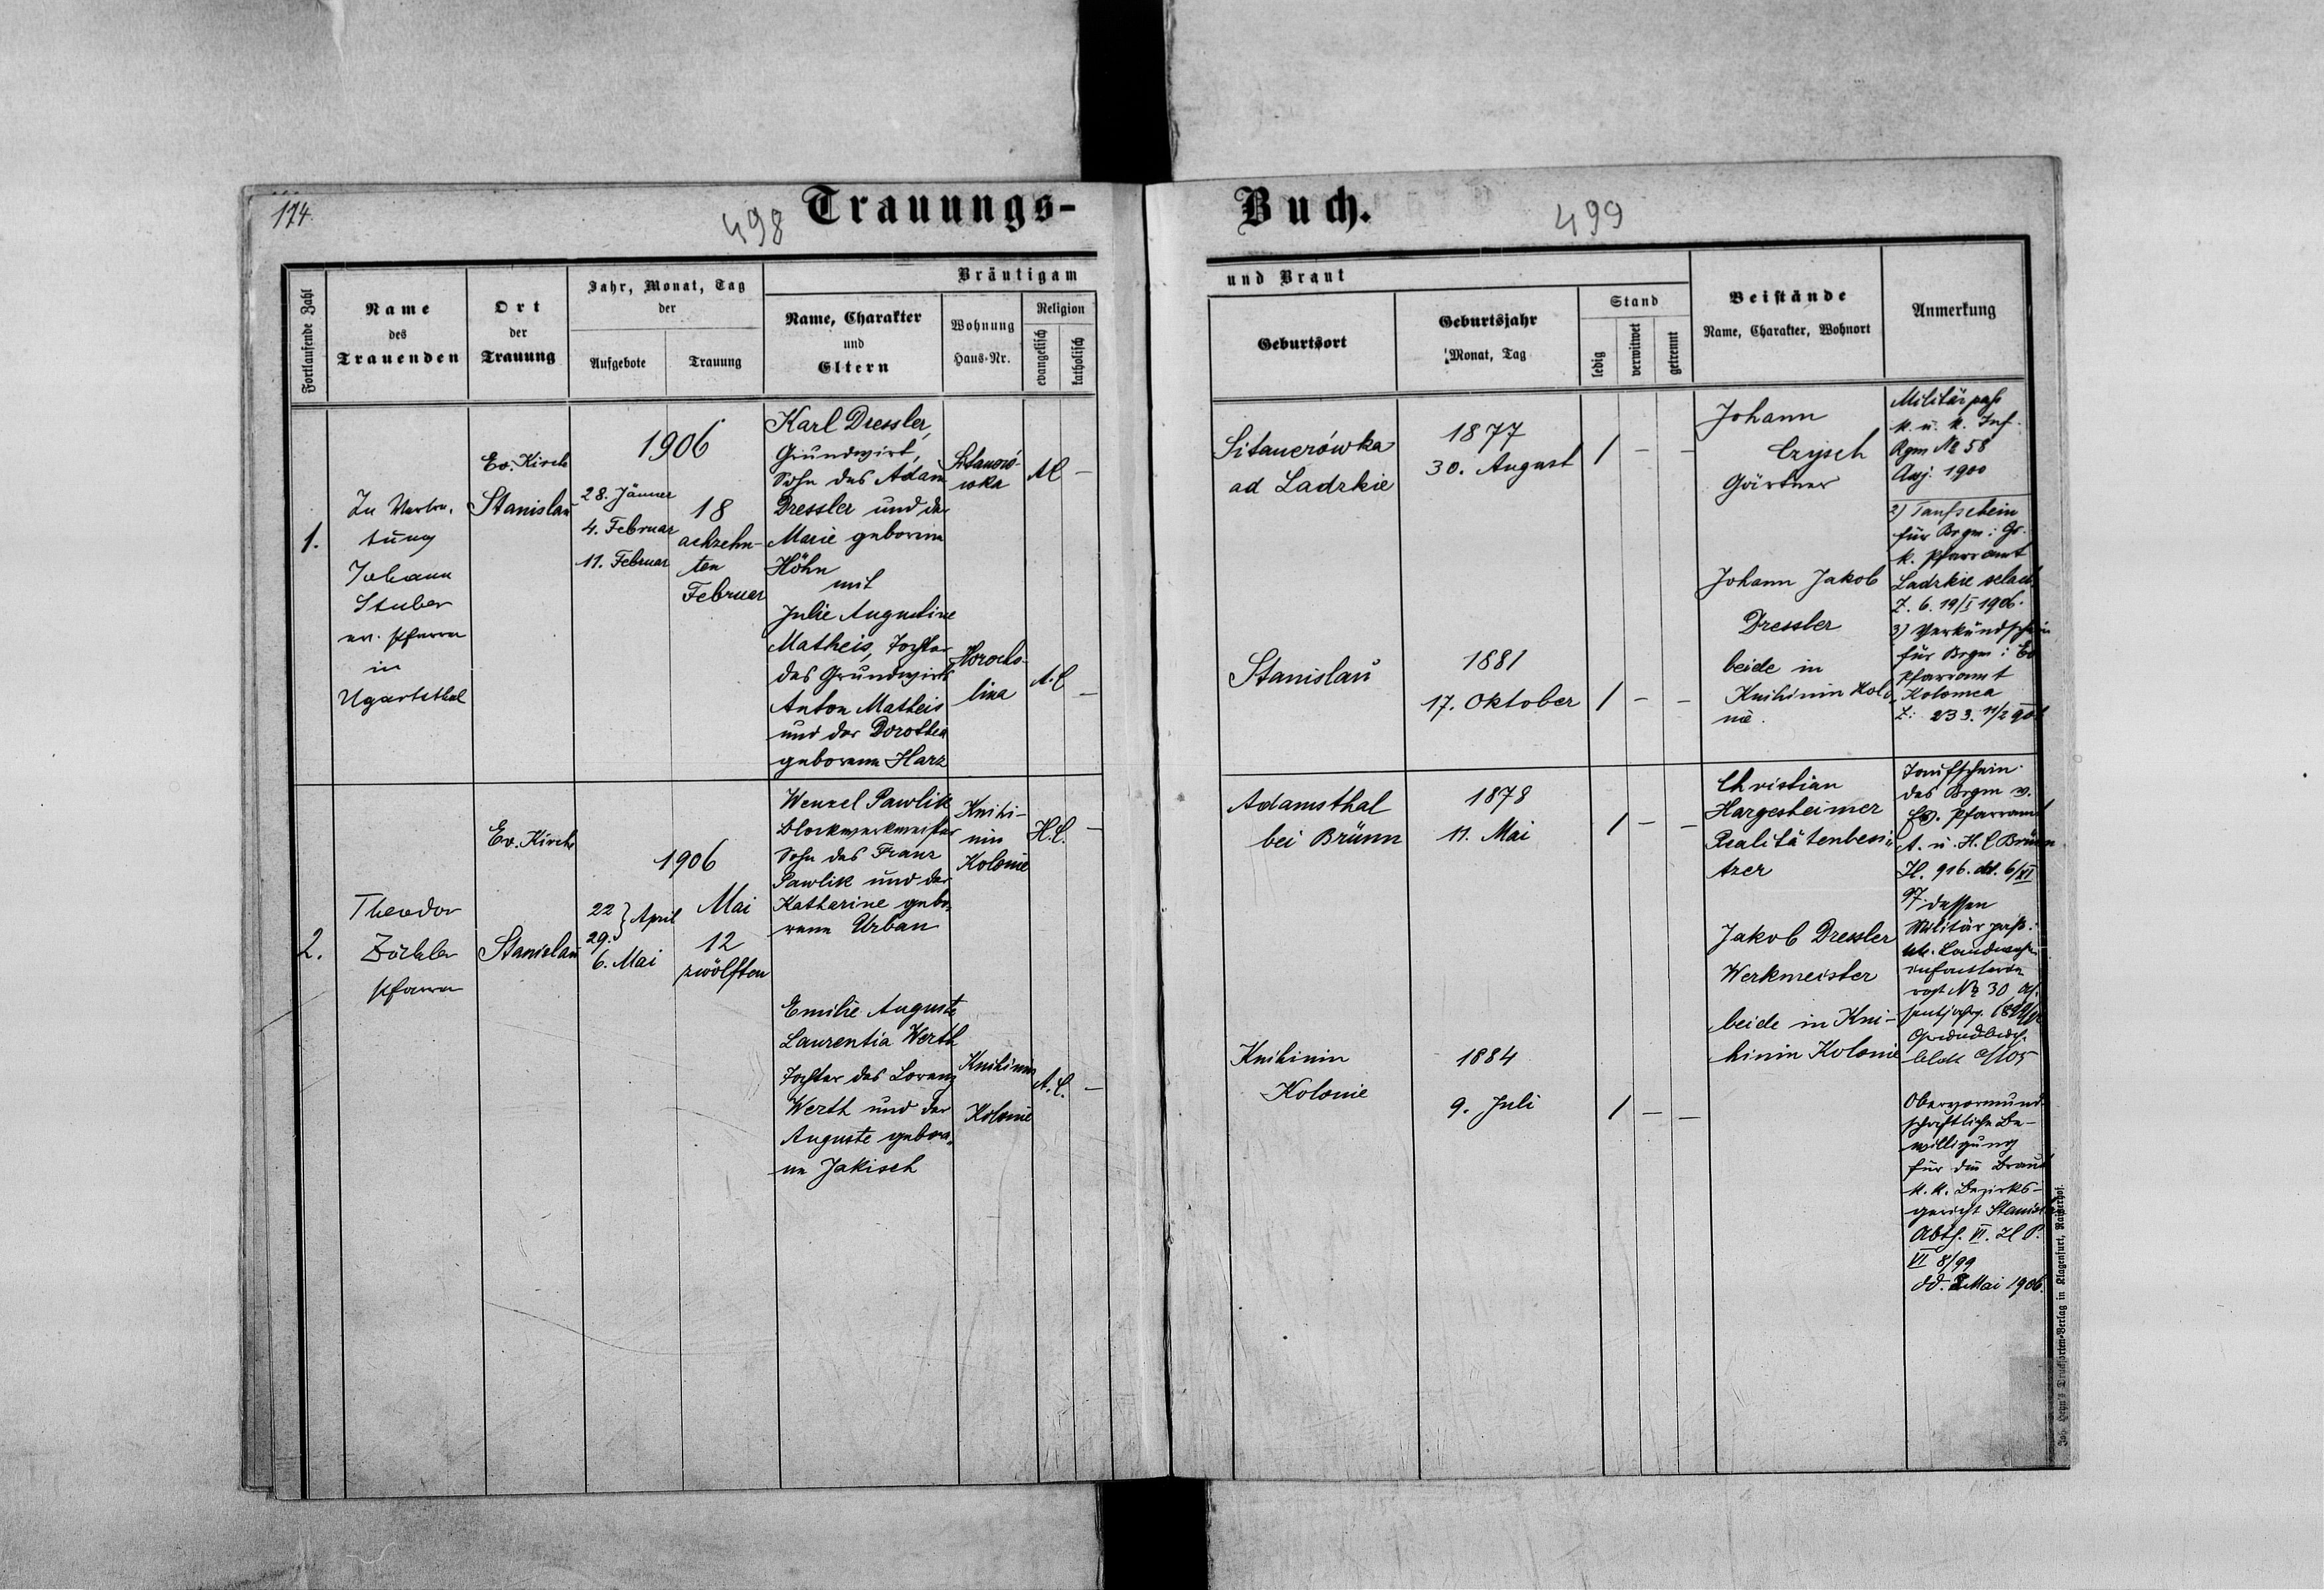 174.
498
Trauungs-
Buch.
499
Fortlaufende Zahl
Name
des
Trauenden
Ort
der
Trauung
Jahr, Monat, Tag
der
Aufgebote
Trauung
Bräutigam
Name, Charakter
und
Eltern
Wohnung
Haus-Nr.
Religion
evangelisch
katholisch
und Braut
Geburtsort
Geburtsjahr
Monat, Tag
Stand
ledig
verwitwet
getrennt
Beistände
Name, Charakter, Wohnort
Anmerkung
1.
In Vertre-
tung
Johann
Stuber
ev. Pfarrer
in
Ugartsthal
Ev. Kirche
Stanislau
1906
28. Jänner
4. Februar
11. Februar
18
achzehn-
ten
Februer
Karl Dressler,
Grundwirt,
Sohn des Adam
Dressler und der
Marie geborene
Höhn
mit
Julie Augustine
Matheis, Tochter
des Grundwirts
Anton Matheis
und der Dorothea
geborene Harz
Sitaueró-
wka
Horocho-
lina
AC —
A.C —
Sitauerówka
ad Ladzkie
Stanislau
1877
30. August
1881
17. Oktober
/ — —
/ — —
Johann
Czysch
Gärtner
Johann Jakob
Dressler
beide in
Knihinin Kolo
nie.
Militärpaß
k. u. k. Inf.
Rgm № 58
Assj. 1900
2) Taufschein
für Brgm: Gr.
k. Pfarramt
Ladzkie szlach.
Z. 6. 19/I 1906.
3) Verkündschein
für Brgm: Ev
Pfarramt
Kolomea
Z: 233. 11/2 906
2.
Theodor
Zöckler
Pfarrer
Ev. Kirche
Stanislau
1906
22 } April
29.
6. Mai
Mai
12
zwölften
Wenzel Pawlik
Blockwerkmeister
Sohn des Franz
Pawlik und der
Katharine gebo-
rene Urban
Emilie Auguste
Laurentia Werth
Tochter des Lorenz
Werth und der
Auguste gebore-
ne Jakisch
Knihi-
nin
Kolonie
Knihinin
Kolonie
H.C. —
A.C. —
Adamsthal
bei Brünn
Knihinin
Kolonie
1878
11. Mai
1884
9. Juli
/ — —
/ — —
Christian
Hargesheimer
Realitätenbesi-
tzer
Jakob Dressler
Werkmeister
beide in Kni-
hinin Kolonie
Taufschein
des Brgm v.
Ev. Pfarramt
A. u. H. C Brünn
Zl. 916. dd. 6/XI
97. dessen
Militärpaß:
Landwehr
infanterie
regt № 30
Obervormund-
schaftliche Be-
willigung
für die Braut
k. k. Bezirks-
gericht Stanislau
Abth. VI. Zl P.
VI 8/99
dd. 2 Mai 1906.
Joh. Heyn's Drucksorten-Verlag in Klagenfurt, Kaiserhof.